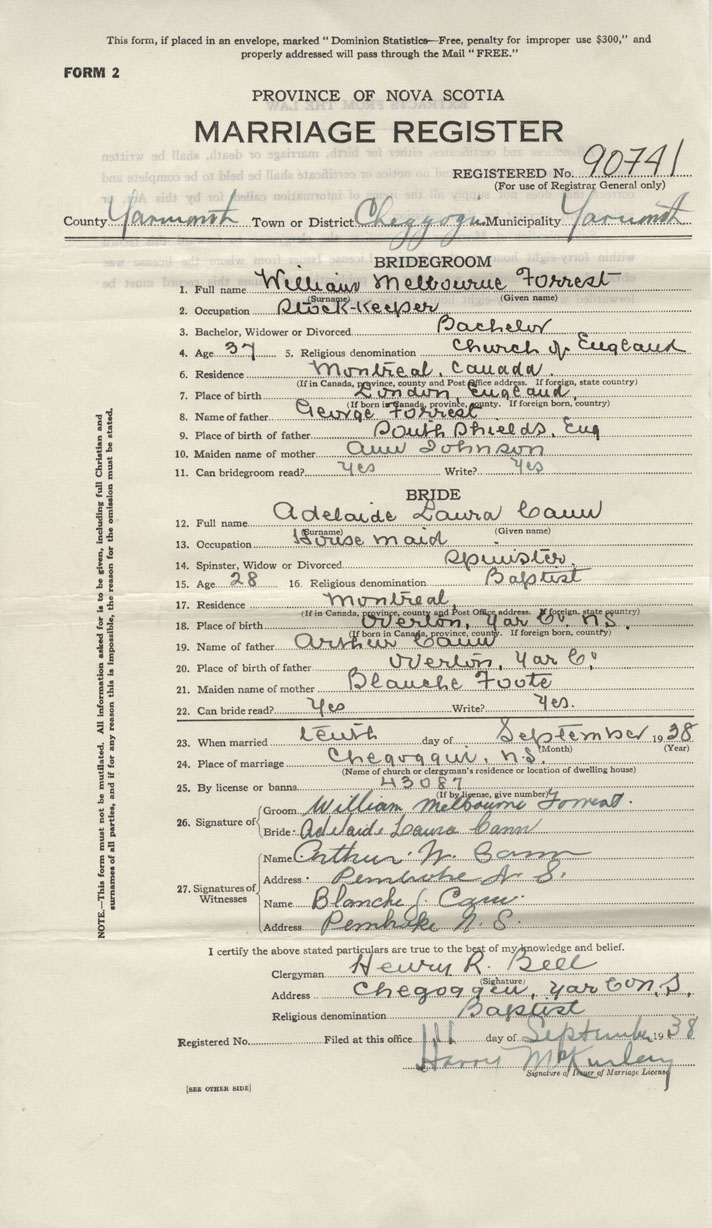 This form, if placed in an envelope, marked "Dominion Statistics—Free, penalty for improper use $300," and
properly addressed will pass through the Mail "FREE."
FORM 2
PROVINCE OF NOVA SCOTIA
MARRIAGE REGISTER
REGISTERED No. 90741
(For use of Registrar General only)
County Yarmouth Town or District Cheggogin Municipality Yarmouth
BRIDEGROOM
1. Full name William Melbourne Forrest
(Surname) (Given name)
2. Occupation Stock-Keeper
3. Bachelor, Widower or Divorced Bachelor
4. Age 37 5. Religious denomination Church of England
6. Residence Montreal, Canada.
(If in Canada, province, county and Post Office address. If foreign, state country)
7. Place of birth London, England,
(If born in Canada, province, county. If foreign born, country)
8. Name of father George Forrest
9. Place of birth of father South Shields, Eng
10. Maiden name of mother Ann Johnson
11. Can bridegroom read? Yes Write? Yes
BRIDE
12. Full name Adelaide Laura Cann
(Surname) (Given name)
13. Occupation House maid
14. Spinster, Widow or Divorced Spinster.
15. Age 28 16. Religious denomination Baptist
17. Residence Montreal
(If in Canada, province, county and Post Office address. If foreign, state country)
18. Place of birth Overton, Yar Co. N.S.
(If born in Canada, province, county. If foreign born, country)
19. Name of father Arthur Cann
20. Place of birth of father Overton, Yar Co.
21. Maiden name of mother Blanche Foote
22. Can bride read? Yes Write? Yes.
23. When married tenth day of September 1938
(Month) (Year)
24. Place of marriage Chegoggin, N.S.
(Name of church or clergyman's residence or location of dwelling house)
25. By license or banns 43087
(If by license, give number)
26. Signature of
Groom William Melbourne Forrest.
Bride Adelaide Laura Cann
27. Signatures of Witnesses
Name Arthur W. Cann
Address Pembroke N.S.
Name Blanche J. Cann.
Address Pembroke N.S.
I certify the above stated particulars are true to the best of my knowledge and belief.
Clergyman Henry R. Bell
(Signature)
Address Chegoggin, Yar Co N.S.
Religious denomination Baptist
Registered No. Filed at this office day of September 1938
Harry McKinley
Signature of Issuer of Marriage License
[SEE OTHER SIDE]
NOTE.—This form must not be mutilated. All information asked for is to be given, including full Christian and
surnames of all parties, and if for any reason this is impossible, the reason for the omission must be stated.